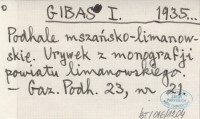 GIBAS I. 1935...
Podhale mszańsko-limanow-
skie. Urywek z monografji
powiatu limanowskiego.
— Gaz. Podh. 23, nr 21.